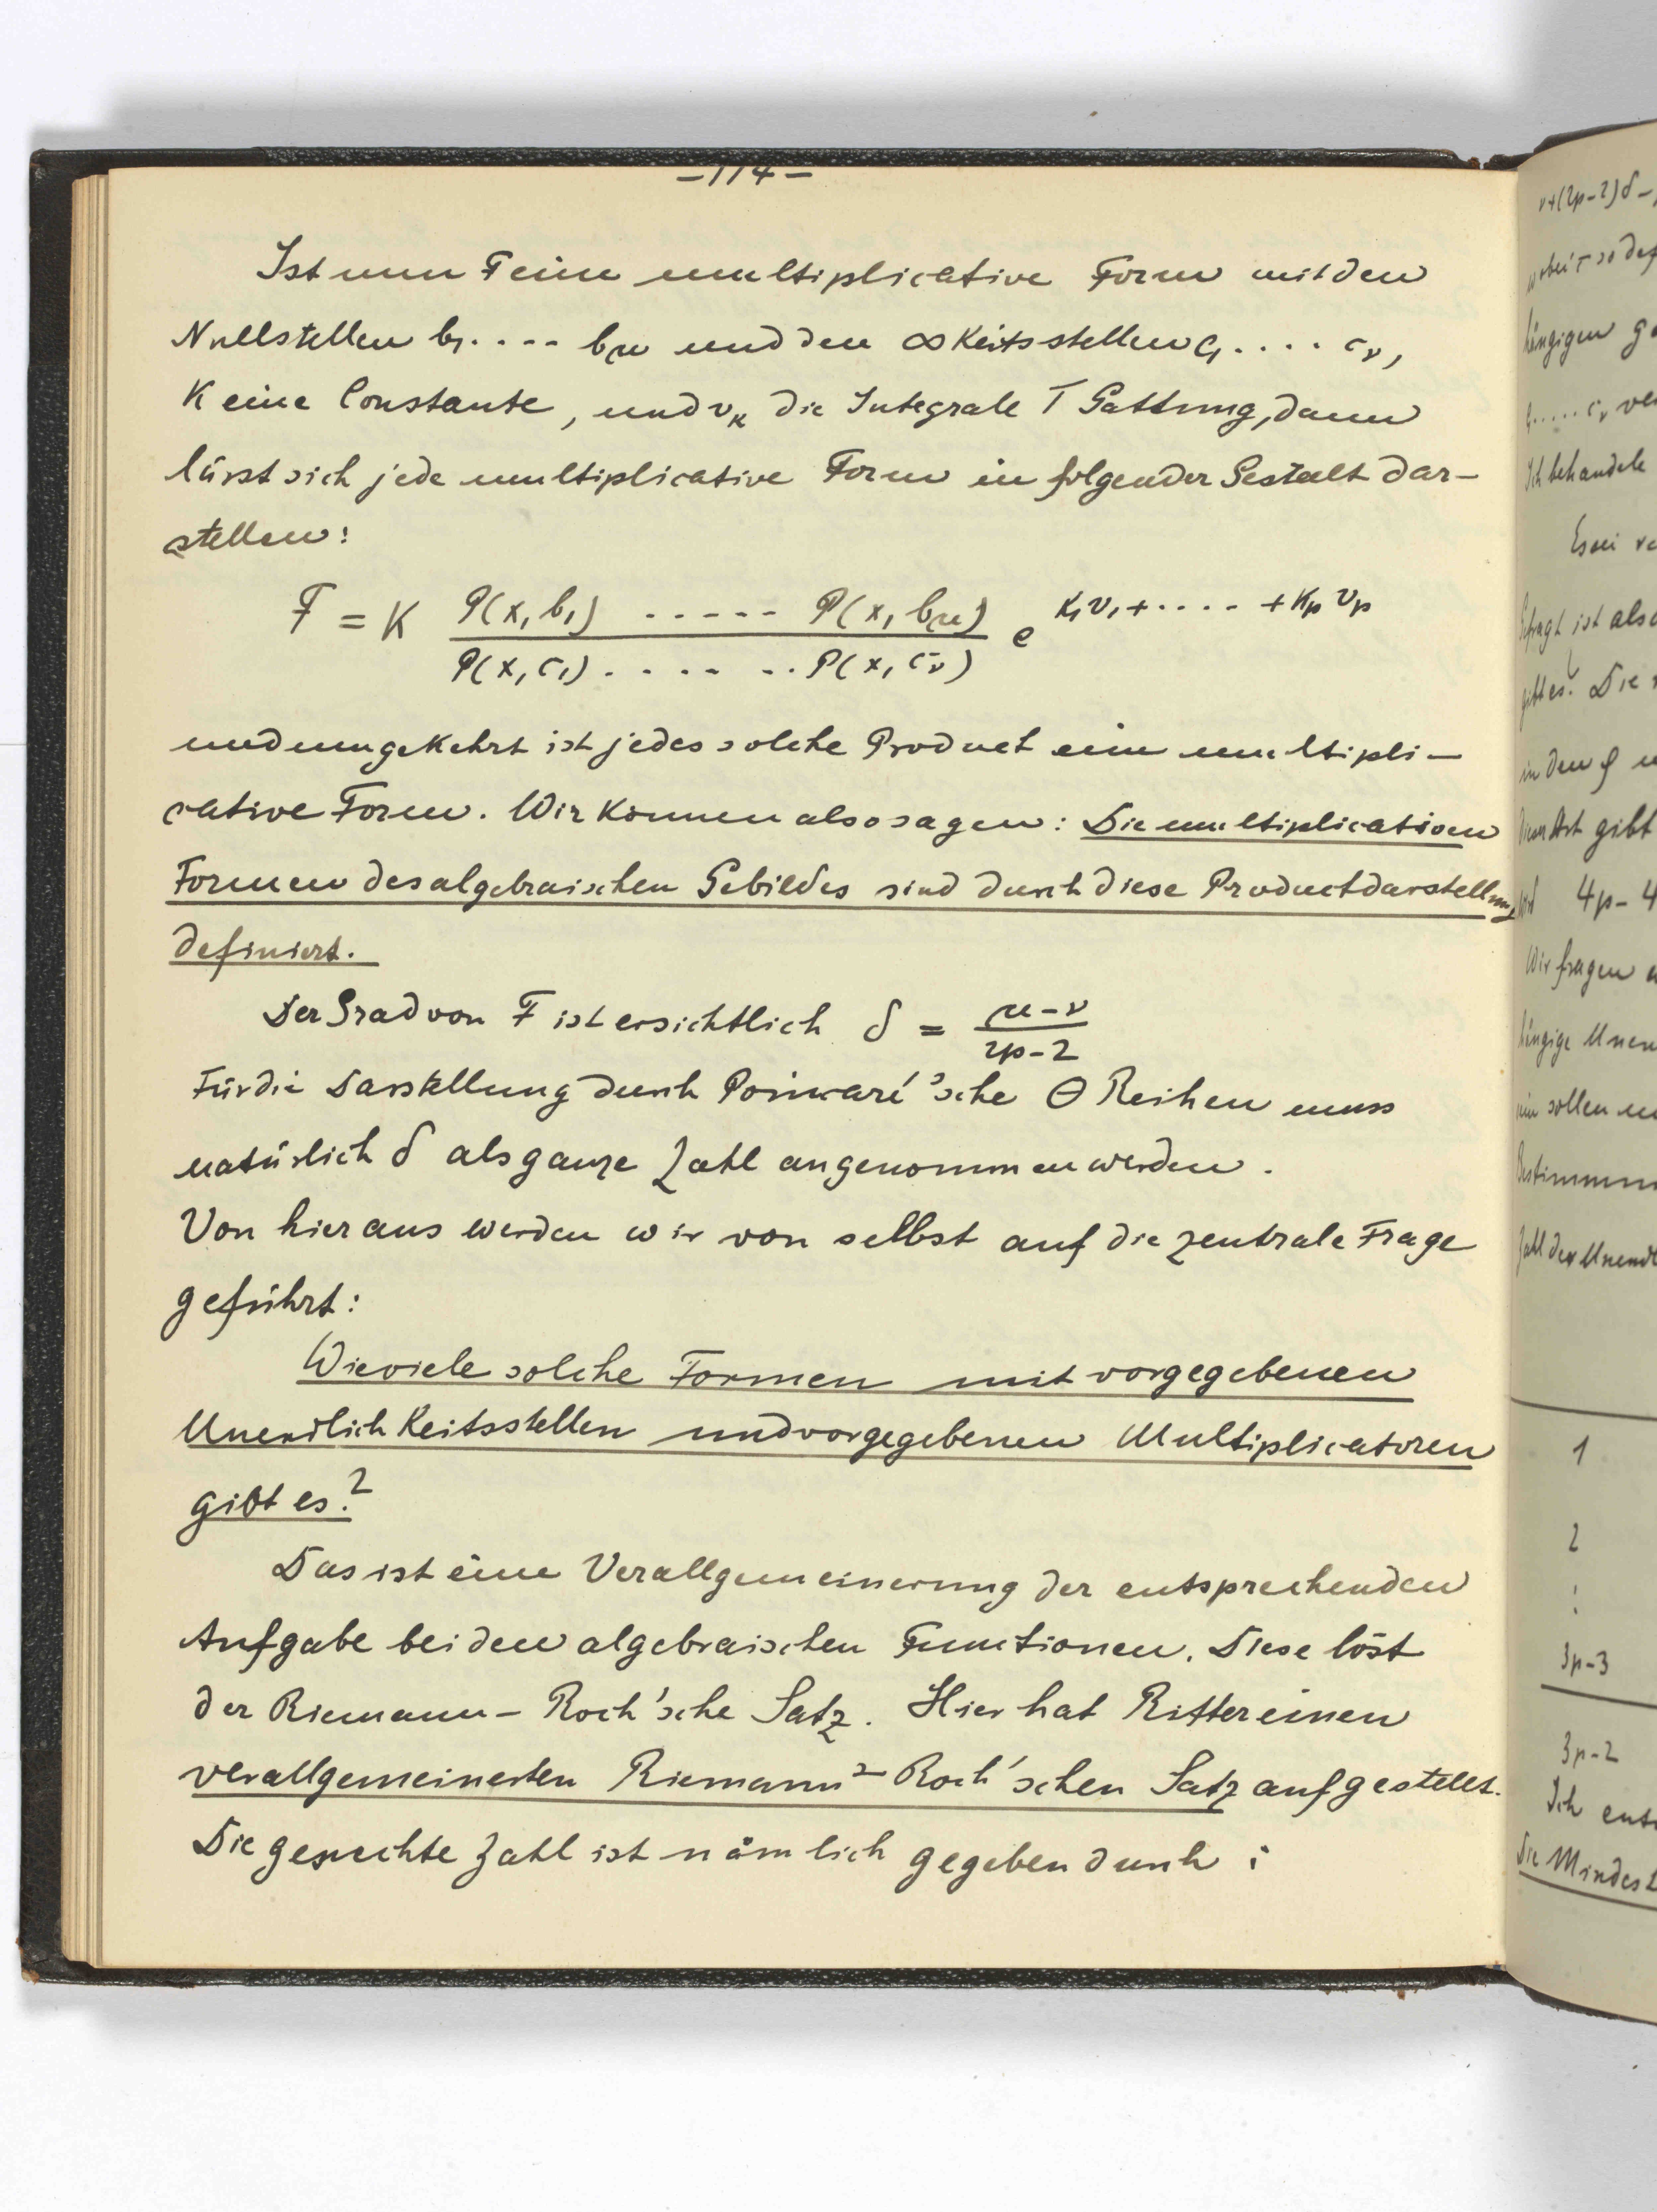 -114-
Ist nun F eine multiplicative Form mit den
Nullstellen b₁ .... bμ und den ∞keitsstellen c₁ .... cν,
K eine Constante, und vκ die Integrale I Gattung, dann
lässt sich jede multiplicative Form in folgender Gestalt dar-
stellen:
F = K P(x,b₁) ..... P(x,bμ) / P(x,c₁) ....... P(x,cν) e^{K₁v₁ + .... + Kp vp}
und umgekehrt ist jedes solche Product eine multipli-
cative Form. Wir können also sagen: Die multiplicativen
Formen des algebraischen Gebildes sind durch diese Productdarstellung
definiert.
Der Grad von F ist ersichtlich δ = μ-ν / 2p-2
Für die Darstellung durch Poincaré'sche Θ Reihen muss
natürlich δ als ganze Zahl angenommen werden.
Von hier aus werden wir von selbst auf die zentrale Frage
geführt:
Wieviele solche Formen mit vorgegebenen
Unendlichkeitsstellen und vorgegebenen Multiplicatoren
gibt es?
Das ist eine Verallgemeinerung der entsprechenden
Aufgabe bei den algebraischen Functionen. Diese löst
der Riemann-Roch'sche Satz. Hier hat Ritter einen
verallgemeinerten Riemann-Roch'schen Satz aufgestellt.
Die gesuchte Zahl ist nämlich gegeben durch :
ν+(2p-2)δ-
hängigen
Ich behandele
Es sei
Gefragt ist also
gibt es? Die
in den φ
dieser Art gibt
4p-4
Wir fragen
hängige Unen
sein sollen
Bestimmun
Zahl der Unendl
1
2
:
3p-3
3p-2
Ich ent
Die Mindest